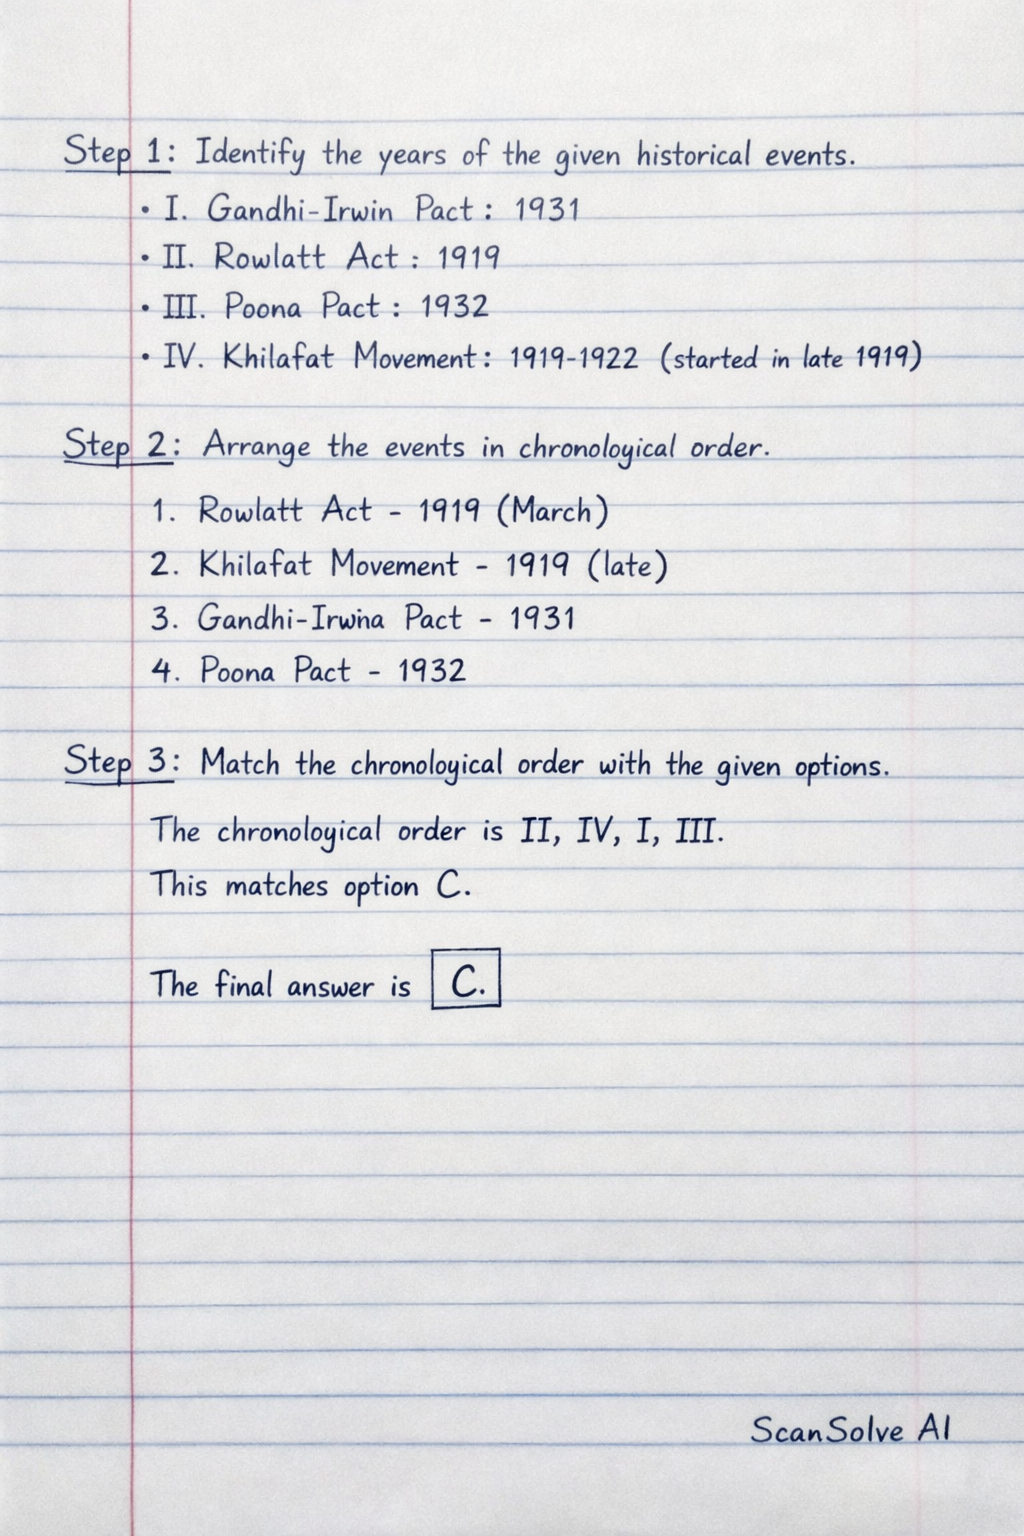 Step 1: Identify the years of the given historical events.
• I. Gandhi-Irwin Pact : 1931
• II. Rowlatt Act : 1919
• III. Poona Pact : 1932
• IV. Khilafat Movement: 1919-1922 (started in late 1919)
Step 2: Arrange the events in chronological order.
1. Rowlatt Act - 1919 (March)
2. Khilafat Movement - 1919 (late)
3. Gandhi-Irwina Pact - 1931
4. Poona Pact - 1932
Step 3: Match the chronological order with the given options.
The chronological order is II, IV, I, III.
This matches option C.
The final answer is C.
ScanSolve AI